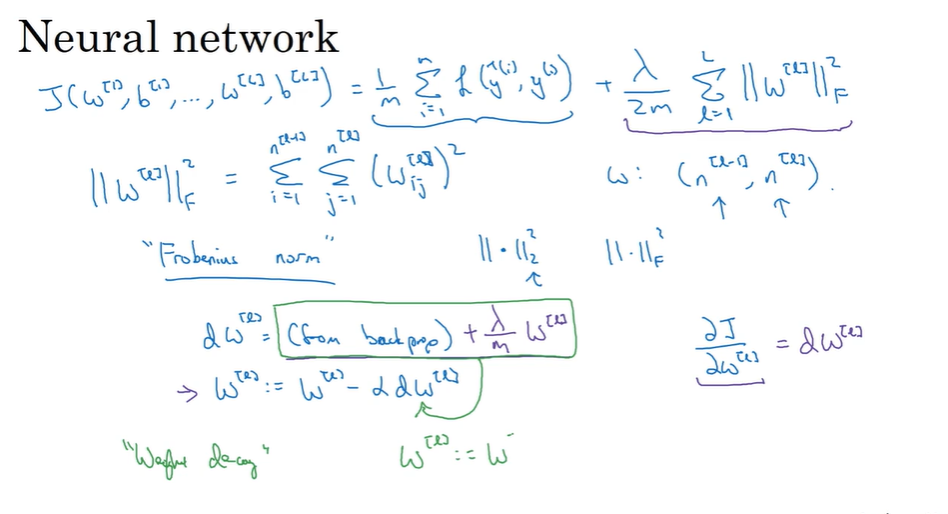 Neural network
J(w^[1], b^[1], ..., w^[L], b^[L]) = 1/m ∑_{i=1}^{n} L(ŷ^(i), y^(i)) + λ/2m ∑_{l=1}^{L} ||w^[l]||_F^2
||w^[l]||_F^2 = ∑_{i=1}^{n^[l-1]} ∑_{j=1}^{n^[l]} (w_ij^[l])^2 w: (n^[l-1], n^[l]).
"Frobenius norm" ||·||_2^2 ||·||_F^2
dw^[l] = (from backprop) + λ/m w^[l]
∂J/∂w^[l] = dw^[l]
→ w^[l] := w^[l] - α dw^[l]
"Weight decay" w^[l] := w